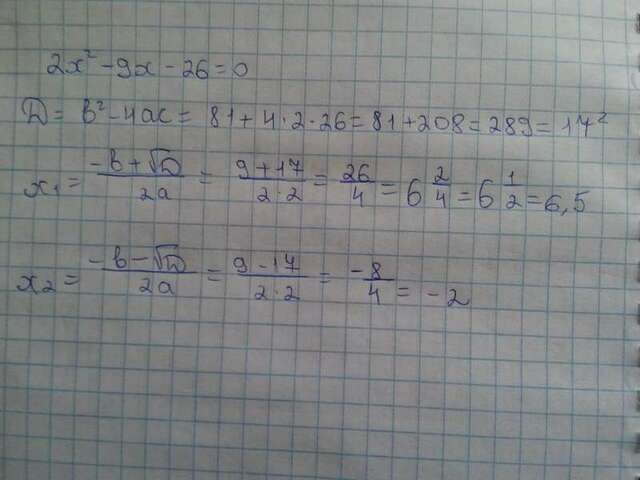 2x² - 9x - 26 = 0
D = b² - 4ac = 81 + 4·2·26 = 81 + 208 = 289 = 17²
x₁ = (-b + √D)/(2a) = (9 + 17)/(2·2) = 26/4 = 6 2/4 = 6 1/2 = 6,5
x₂ = (-b - √D)/(2a) = (9 - 17)/(2·2) = -8/4 = -2